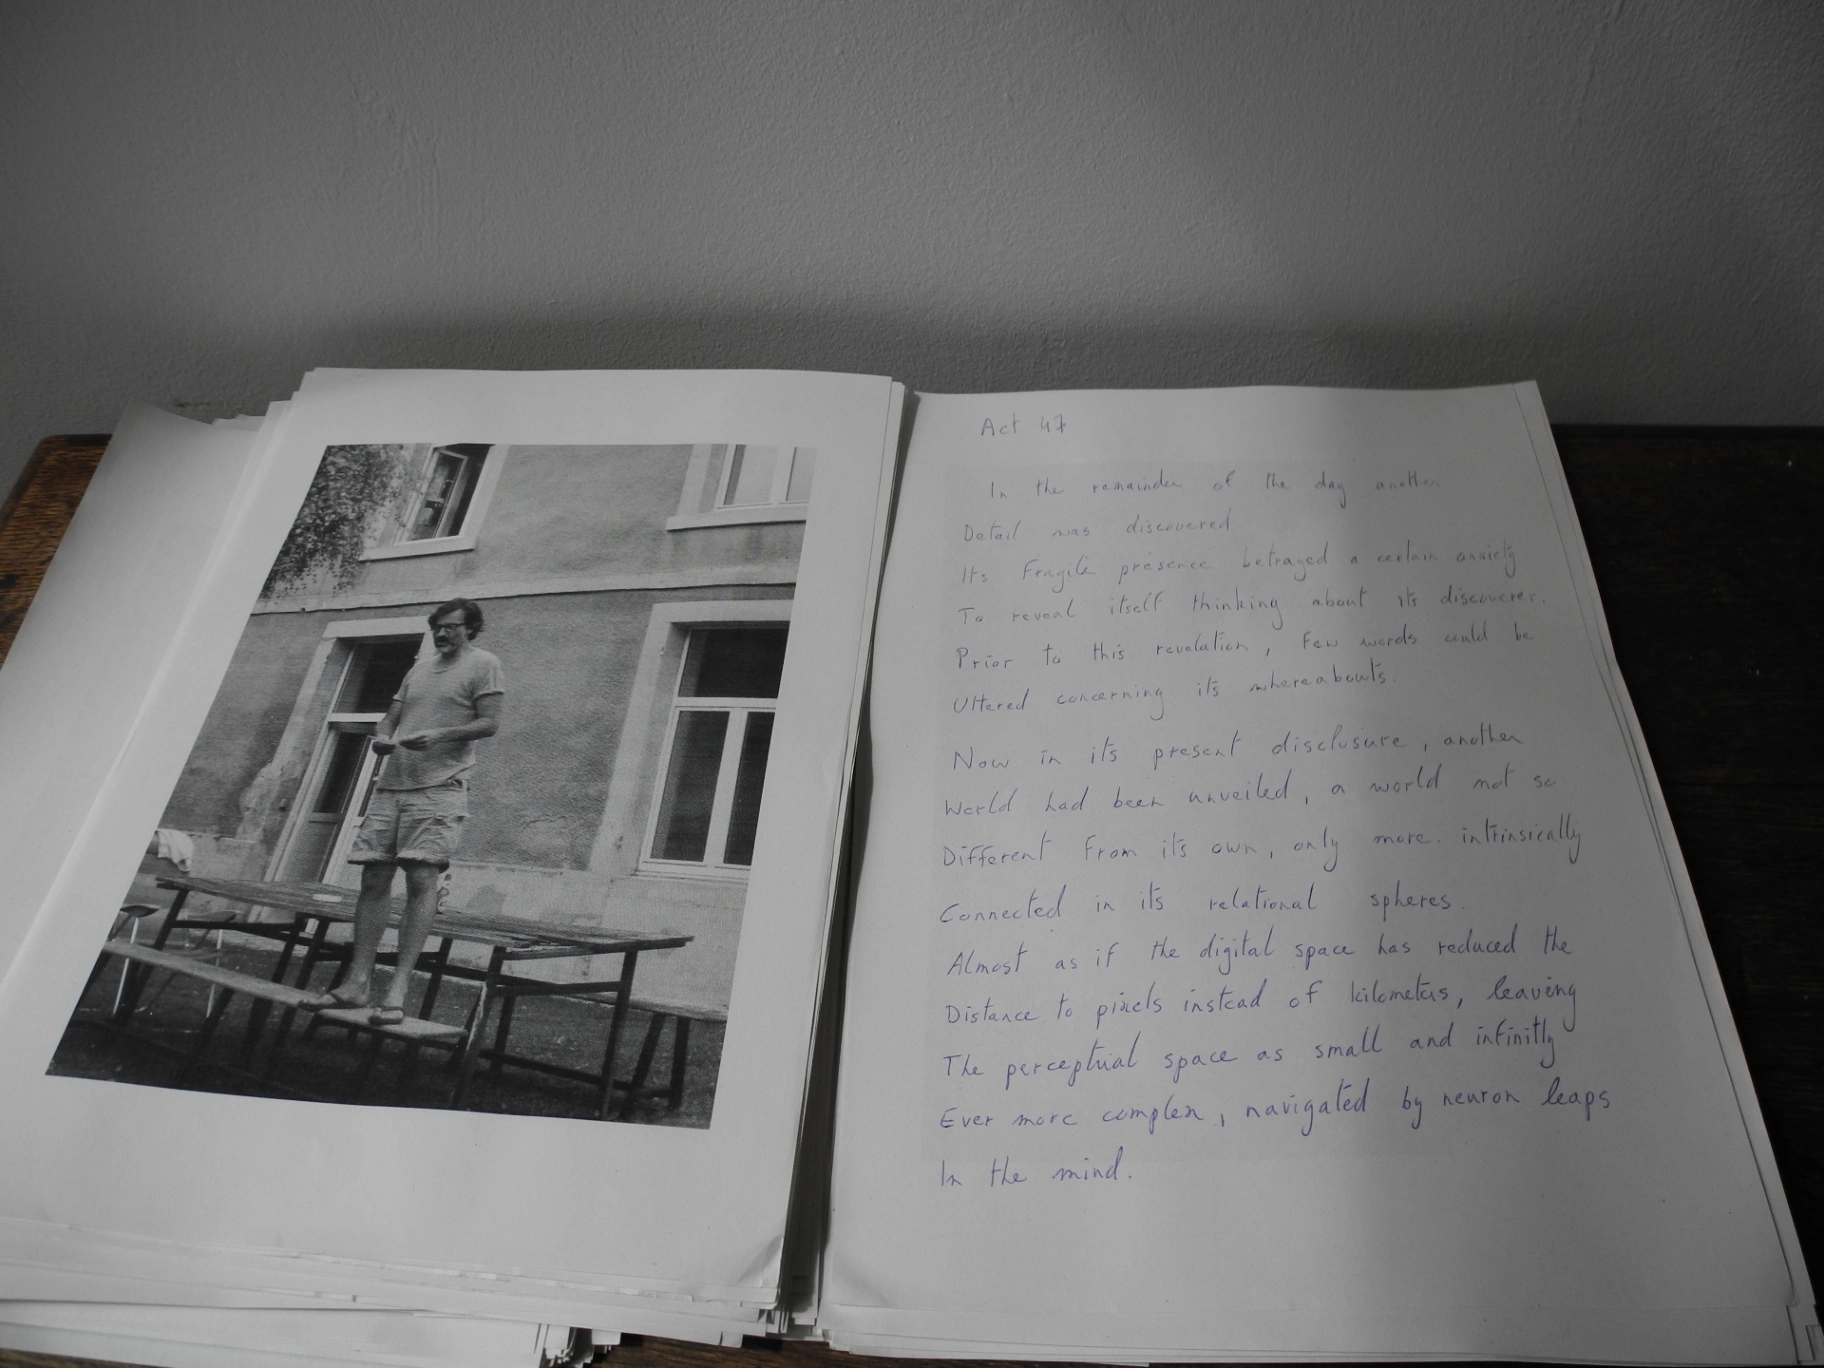 Act 47
In the remainder of the day another
Detail was discovered.
Its Fragile presence betrayed a certain anxiety
To reveal itself thinking about its discoverer.
Prior to this revelation, Few words could be
Uttered concerning its whereabouts.
Now in its present disclosure, another
World had been unveiled, a world not so
Different From its own, only more intrinsically
Connected in its relational spheres.
Almost as if the digital space has reduced the
Distance to pixels instead of kilometers, leaving
The perceptual space as small and infinitly
Ever more complex, navigated by neuron leaps
In the mind.